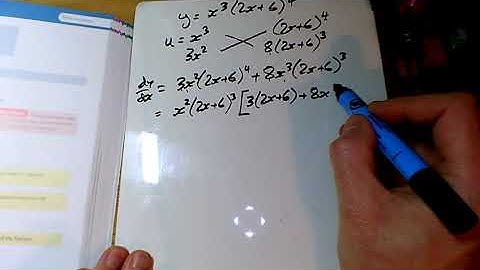 y = x³(2x+6)⁴
u = x³ (2x+6)⁴
3x² 8(2x+6)³
dy/dx = 3x²(2x+6)⁴ + 8x³(2x+6)³
= x²(2x+6)³ [3(2x+6) + 8x